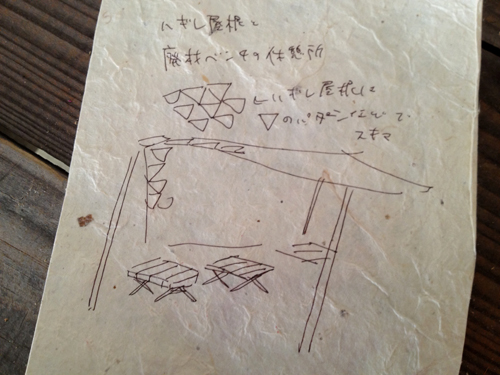 ハギレ屋根と
廃材ベンチの休憩所
ハギレ屋根に
▽のパターン
スキマ